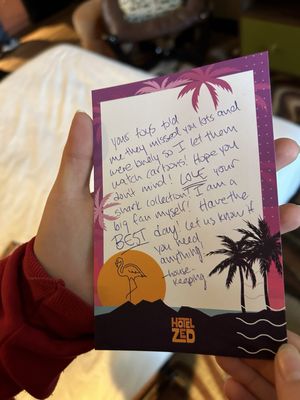 your toys told
me they missed you lots and
were lonely so I let them
watch cartoons! Hope you
don't mind! LOVE your
shark collection! I am a
big fan myself! Have the
BEST day! Let us know if
you need
anything!
House-
keeping
HOTEL
ZED